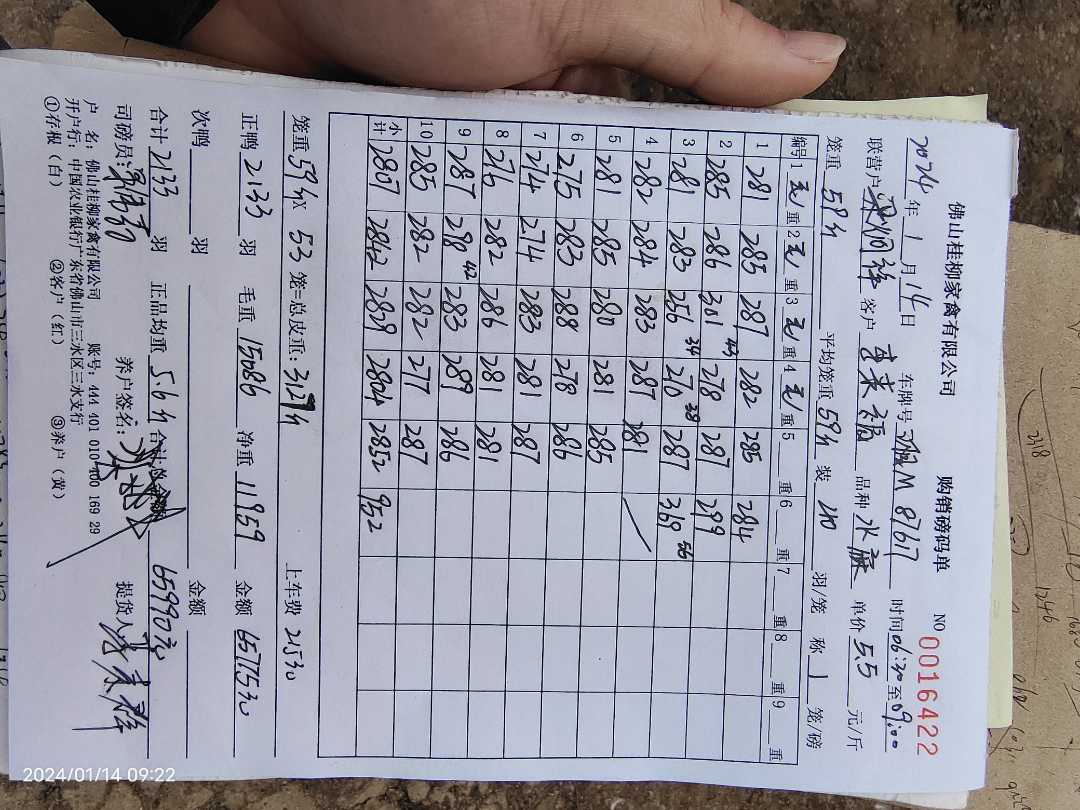 佛山桂柳家禽有限公司 购销磅码单 NO 0016422
2024年1月14日 车牌号 M 87617 时间06:30至09:00
联营户 客户 李来福 品种 水麻 单价5.5元/斤
笼重 59斤 平均笼重59斤 装40羽/笼 称1笼/磅
编号 1元/重 2元/重 3元/重 4元/重 5 重 6 重 7 重 8 重 9 重
1 281 285 287 282 285 284
2 285 286 301 43 278 287 299
3 281 283 256 34 270 38 287 369 56
4 282 284 283 287 281
5 281 285 280 281 285
6 275 283 288 278 286
7 274 274 283 281 287
8 276 282 286 281 281
9 287 298 42 283 289 286
10 285 282 282 277 287
小计 2807 2842 2829 2804 2852 952
笼重59斤× 53笼=总皮重:3127斤 上车费 2130
正鸭2133羽 毛重15086 净重11959 金额6577530
次鸭 羽 金额
合计2133羽 正品均重5.6斤 合计总金额65990元
司磅员: 养户签名: 提货人
户 名:佛山桂柳家禽有限公司 账号:444 401 010 400 169 29
开户行:中国农业银行广东省佛山市三水区三水支行
①存根(白) ②客户(红) ③养户(黄)
2024/01/14 09:22